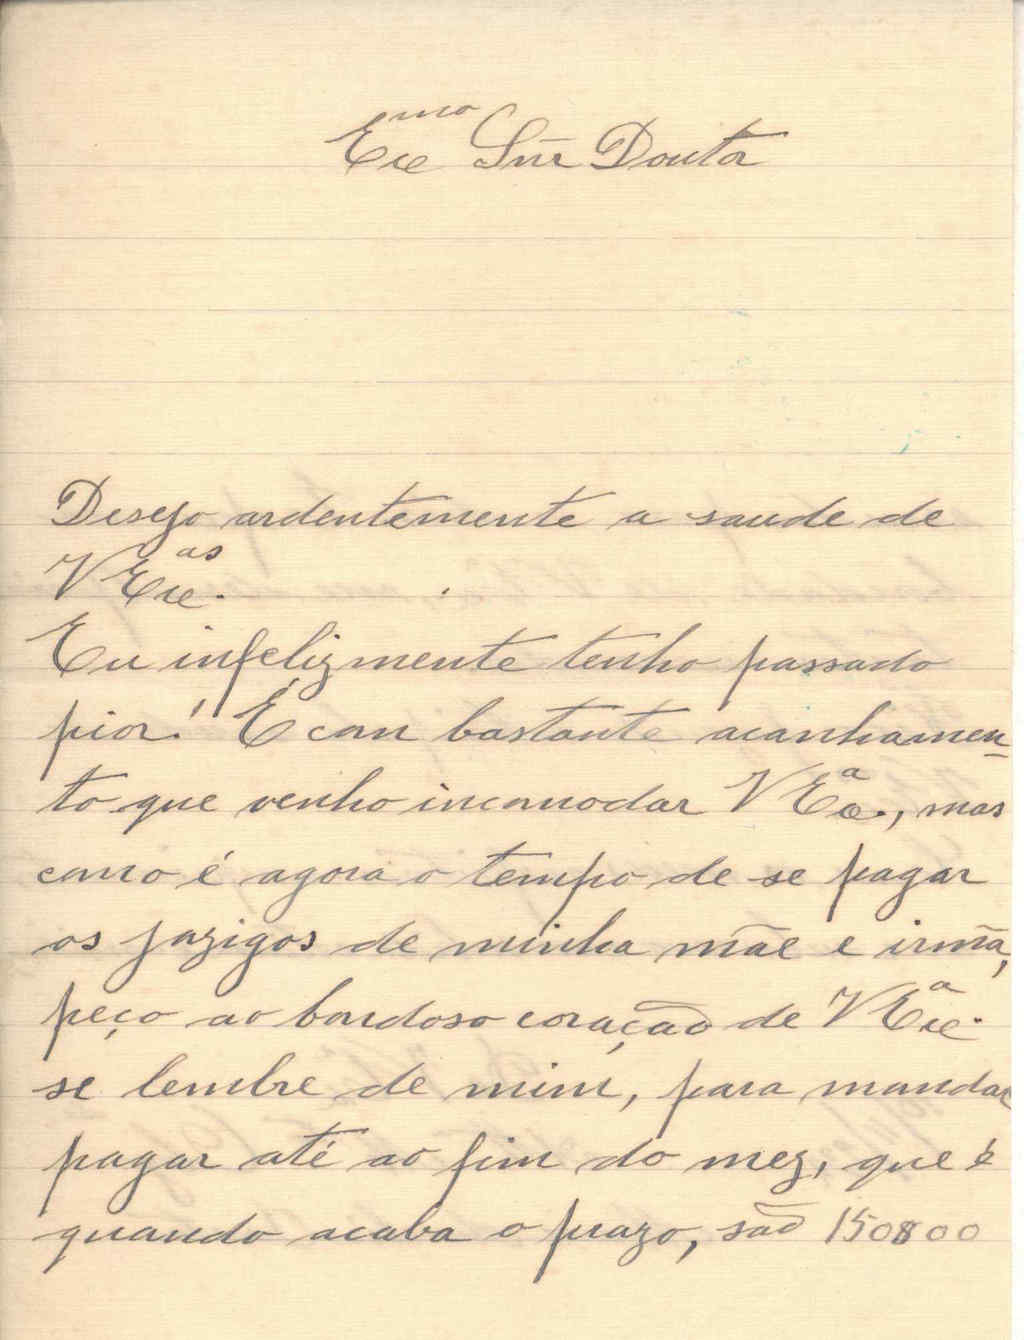 Exc mo Snr Doutor
Desejo ardentemente a saude de
V Exc as.
Eu infelizmente tenho passado
pior! É com bastante acanhamen-
to que venho incomodar V Exc a., mas
como é agora o tempo de se pagar
os jazigos de minha mãe e irmã,
peço ao bondoso coração de V Exc a.
se lembre de mim, para mandar
pagar até ao fim do mez, que é
quando acaba o prazo, são 150$00